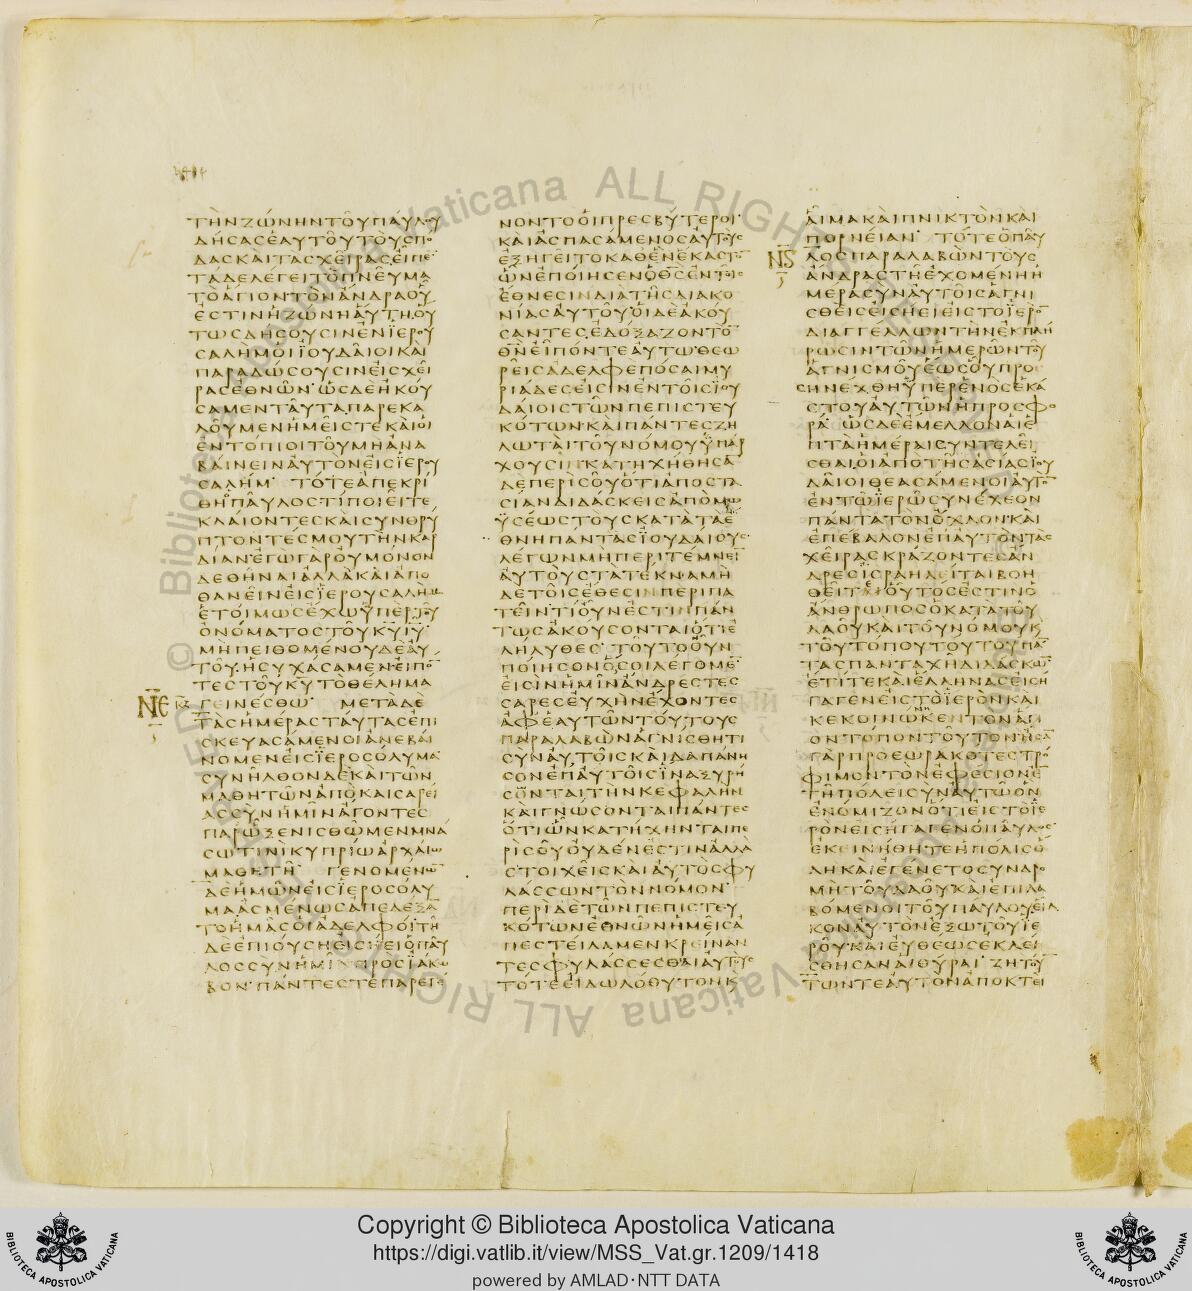 ΤΗΝΖΩΝΗΝΤΟΥΠΑΥΛΟΥ
ΔΗСΑСΕΑΥΤΟΥΤΟΥСΠΟ
ΔΑСΚΑΙΤΑСΧΕΙΡΑСΕΙΠΕ
ΤΑΔΕΛΕΓΕΙΤΟΠΝΕΥΜΑ
ΤΟΑΓΙΟΝΤΟΝΑΝΔΡΑΟΥ
ΕСΤΙΝΗΖΩΝΗΑΥΤΗΟΥ
ΤΩСΔΗСΟΥСΙΝΕΝΙΕΡΟΥ
СΑΛΗΜΟΙΙΟΥΔΑΙΟΙΚΑΙ
ΠΑΡΑΔΩСΟΥСΙΝΕΙСΧΕΙ
ΡΑСΕΘΝΩΝ·ΩСΔΕΗΚΟΥ
СΑΜΕΝΤΑΥΤΑΠΑΡΕΚΑ
ΛΟΥΜΕΝΗΜΕΙСΤΕΚΑΙΟΙ
ΕΝΤΟΠΙΟΙΤΟΥΜΗΑΝΑ
ΒΑΙΝΕΙΝΑΥΤΟΝΕΙСΙΕΡΟΥ
СΑΛΗΜ· ΤΟΤΕΑΠΕΚΡΙ
ΘΗΠΑΥΛΟСΤΙΠΟΙΕΙΤΕ
ΚΛΑΙΟΝΤΕСΚΑΙСΥΝΘΡΥ
ΠΤΟΝΤΕСΜΟΥΤΗΝΚΑΡ
ΔΙΑΝΕΓΩΓΑΡΟΥΜΟΝΟΝ
ΔΕΘΗΝΑΙΑΛΛΑΚΑΙΑΠΟ
ΘΑΝΕΙΝΕΙСΙΕΡΟΥСΑΛΗΜ
ΕΤΟΙΜΩСΕΧΩΥΠΕΡΤΟΥ
ΟΝΟΜΑΤΟСΤΟΥΚΥΙΥ·
ΜΗΠΕΙΘΟΜΕΝΟΥΔΕΑΥ
ΤΟΥΗСΥΧΑСΑΜΕΝΕΙΠΟ
ΤΕСΤΟΥΚΥΤΟΘΕΛΗΜΑ
ΓΕΙΝΕСΘΩ ΜΕΤΑΔΕ
ΤΑСΗΜΕΡΑСΤΑΥΤΑСΕΠΙ
СΚΕΥΑСΑΜΕΝΟΙΑΝΕΒΑΙ
ΝΟΜΕΝΕΙСΙΕΡΟСΟΛΥΜΑ
СΥΝΗΛΘΟΝΔΕΚΑΙΤΩΝ
ΜΑΘΗΤΩΝΑΠΟΚΑΙСΑΡΕΙ
ΑССΥΝΗΜΙΝΑΓΟΝΤΕС
ΠΑΡΩΞΕΝΙСΘΩΜΕΝΜΝΑ
СΩΤΙΝΙΚΥΠΡΙΩΑΡΧΑΙΩ
ΜΑΘΗΤΗ· ΓΕΝΟΜΕΝΩ
ΔΕΗΜΩΝΕΙСΙΕΡΟСΟΛΥ
ΜΑΑСΜΕΝΩСΑΠΕΔΕΞΑ
ΤΟΗΜΑСΟΙΑΔΕΛΦΟΙΤΗ
ΔΕΕΠΙΟΥСΗΕΙСΗΕΙΟΠΑΥ
ΛΟССΥΝΗΜΙΝΠΡΟСΙΑΚΩ
ΒΟΝ·ΠΑΝΤΕСΤΕΠΑΡΕΓΕ
ΝΟΝΤΟΟΙΠΡΕСΒΥΤΕΡΟΙ·
ΚΑΙΑСΠΑСΑΜΕΝΟСΑΥΤΟΥС
ΕΞΗΓΕΙΤΟΚΑΘΕΝΕΚΑСΤΟ
ΩΝΕΠΟΙΗСΕΝΟΘСΕΝΤΟΙС
ΕΘΝΕСΙΝΔΙΑΤΗСΔΙΑΚΟ
ΝΙΑСΑΥΤΟΥΟΙΔΕΑΚΟΥ
СΑΝΤΕСΕΔΟΞΑΖΟΝΤΟ
ΘΝΕΙΠΟΝΤΕΑΥΤΩΘΕΩ
ΡΕΙСΑΔΕΛΦΕΠΟСΑΙΜΥ
ΡΙΑΔΕСΕΙСΙΝΕΝΤΟΙСΙΟΥ
ΔΑΙΟΙСΤΩΝΠΕΠΙСΤΕΥ
ΚΟΤΩΝ·ΚΑΙΠΑΝΤΕСΖΗ
ΛΩΤΑΙΤΟΥΝΟΜΟΥΥΠΑΡ
ΧΟΥСΙΝΚΑΤΗΧΗΘΗСΑ
ΔΕΠΕΡΙСΟΥΟΤΙΑΠΟСΤΑ
СΙΑΝΔΙΔΑСΚΕΙСΑΠΟΜΩ
ΥСΕΩСΤΟΥСΚΑΤΑΤΑΕ
ΘΝΗΠΑΝΤΑСΙΟΥΔΑΙΟΥС·
ΛΕΓΩΝΜΗΠΕΡΙΤΕΜΝΕΙ
ΑΥΤΟΥСΤΑΤΕΚΝΑΜΗ
ΔΕΤΟΙСΕΘΕСΙΝΠΕΡΙΠΑ
ΤΕΙΝΤΙΟΥΝΕСΤΙΝΠΑΝ
ΤΩСΑΚΟΥСΟΝΤΑΙΟΤΙΕ
ΛΗΛΥΘΕС ΤΟΥΤΟΟΥΝ
ΠΟΙΗСΟΝΟСΟΙΛΕΓΟΜΕ·
ΕΙСΙΝΗΜΙΝΑΝΔΡΕСΤΕС
СΑΡΕСΕΥΧΗΝΕΧΟΝΤΕС
ΑΦΕΑΥΤΩΝΤΟΥΤΟΥС
ΠΑΡΑΛΑΒΩΝΑΓΝΙСΘΗΤΙ
СΥΝΑΥΤΟΙСΚΑΙΔΑΠΑΝΗ
СΟΝΕΠΑΥΤΟΙСΙΝΑΞΥΡΗ
СΟΝΤΑΙΤΗΝΚΕΦΑΛΗΝ
ΚΑΙΓΝΩСΟΝΤΑΙΠΑΝΤΕС
ΟΤΙΩΝΚΑΤΗΧΗΝΤΑΙΠΕ
ΡΙСΟΥΟΥΔΕΝΕСΤΙΝΑΛΛΑ
СΤΟΙΧΕΙСΚΑΙΑΥΤΟСΦΥ
ΛΑССΩΝΤΟΝΝΟΜΟΝ·
ΠΕΡΙΔΕΤΩΝΠΕΠΙСΤΕΥ
ΚΟΤΩΝΕΘΝΩΝΗΜΕΙСΑ
ΠΕСΤΕΙΛΑΜΕΝΚΡΕΙΝΑΝ
ΤΕСΦΥΛΑССΕСΘΑΙΑΥΤΟΥС
ΤΟΤΕΕΙΔΩΛΟΘΥΤΟΝΚ
ΑΙΜΑΚΑΙΠΝΙΚΤΟΝΚΑΙ
ΠΟΡΝΕΙΑΝ· ΤΟΤΕΟΠΑΥ
ΛΟСΠΑΡΑΛΑΒΩΝΤΟΥС
ΑΝΔΡΑСΤΗΕΧΟΜΕΝΗΗ
ΜΕΡΑСΥΝΑΥΤΟΙСΑΓΝΙ
СΘΕΙСΕΙСΗΕΙΕΙСΤΟΙΕΡΟ
ΔΙΑΓΓΕΛΛΩΝΤΗΝΕΚΠΛΗ
ΡΩСΙΝΤΩΝΗΜΕΡΩΝΤΟΥ
ΑΓΝΙСΜΟΥΕΩСΟΥΠΡΟ
СΗΝΕΧΘΗΥΠΕΡΕΝΟСΕΚΑ
СΤΟΥΑΥΤΩΝΗΠΡΟСΦΟ
ΡΑ· ΩСΔΕΕΜΕΛΛΟΝΑΙΕ
ΠΤΑΗΜΕΡΑΙСΥΝΤΕΛΕΙ
СΘΑΙΟΙΑΠΟΤΗСΑСΙΑСΙΟΥ
ΔΑΙΟΙΘΕΑСΑΜΕΝΟΙΑΥΤΟ
ΕΝΤΩΙΕΡΩСΥΝΕΧΕΟΝ
ΠΑΝΤΑΤΟΝΟΧΛΟΝΚΑΙ
ΕΠΕΒΑΛΟΝΕΠΑΥΤΟΝΤΑС
ΧΕΙΡΑСΚΡΑΖΟΝΤΕСΑΝ
ΔΡΕСΙСΡΑΗΛΕΙΤΑΙΒΟΗ
ΘΕΙΤΕΟΥΤΟСΕСΤΙΝΟ
ΑΝΘΡΩΠΟСΟΚΑΤΑΤΟΥ
ΛΑΟΥΚΑΙΤΟΥΝΟΜΟΥΚ
ΤΟΥΤΟΠΟΥΤΟΥΤΟΥΠΑ
ΤΑСΠΑΝΤΑΧΗΔΙΔΑСΚΩ
ΕΤΙΤΕΚΑΙΕΛΛΗΝΑСΕΙСΗ
ΓΑΓΕΝΕΙСΤΟΙΕΡΟΝΚΑΙ
ΚΕΚΟΙΝΩΚΕΝΤΟΝΑΓΙ
ΟΝΤΟΠΟΝΤΟΥΤΟΝΗСΑ
ΓΑΡΠΡΟΕΩΡΑΚΟΤΕСΤΡΟ
ΦΙΜΟΝΤΟΝΕΦΕСΙΟΝΕ
ΤΗΠΟΛΕΙСΥΝΑΥΤΩΟΝ
ΕΝΟΜΙΖΟΝΟΤΙΕΙСΤΟΙΕ
ΡΟΝΕΙСΗΓΑΓΕΝΟΠΑΥΛΟС·
ΕΚΕΙΝΗΘΗΤΕΗΠΟΛΙСΟ
ΛΗΚΑΙΕΓΕΝΕΤΟСΥΝΔΡΟ
ΜΗΤΟΥΛΑΟΥΚΑΙΕΠΙΛΑ
ΒΟΜΕΝΟΙΤΟΥΠΑΥΛΟΥΕΙΛ
ΚΟΝΑΥΤΟΝΕΞΩΤΟΥΙΕ
ΡΟΥ·ΚΑΙΕΥΘΕΩСΕΚΛΕΙ
СΘΗСΑΝΑΙΘΥΡΑΙ· ΖΗΤΟΥ
ΤΩΝΤΕΑΥΤΟΝΑΠΟΚΤΕΙ
ΝΕ
ΝϚ
Biblioteca Apostolica Vaticana ALL RIGHTS RESERVED ©
BIBLIOTECA APOSTOLICA VATICANA
Copyright © Biblioteca Apostolica Vaticana
https://digi.vatlib.it/view/MSS_Vat.gr.1209/1418
powered by AMLAD·NTT DATA
BIBLIOTECA APOSTOLICA VATICANA